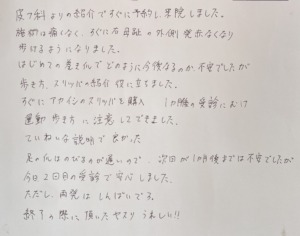 皮フ科よりの紹介ですぐに予約し、来院しました。
施術は痛くなく、すぐに右母趾の外側発赤なくなり
歩けるようになりました。
はじめての巻き爪でどのように今後なるのか不安でしたが
歩き方、スリッパの紹介役に立ちました。
すぐにアカイシのスリッパを購入 1ヶ月後の受診にむけ
運動 歩き方に注意してできました。
ていねいな説明で良かった
足の爪はのびるのが遅いので、次回が1ヶ月後までは不安でしたが
今日2回目の受診で安心しました。
ただし、再発はしんぱいである。
終了の際に頂いたヤスリ うれしい!!